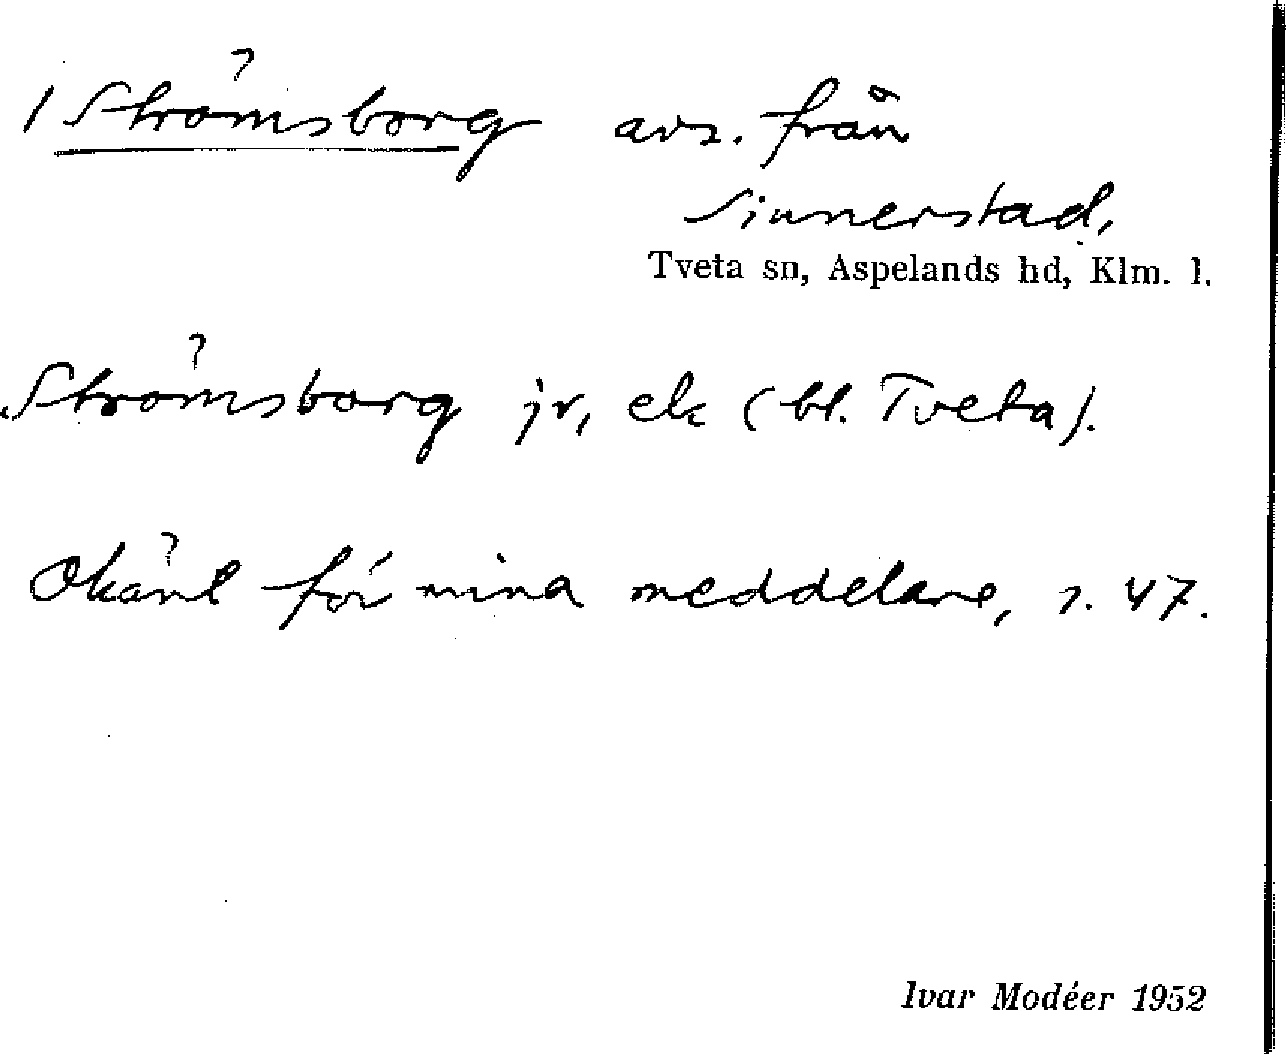 / Strömsborg avs. från
Sinnerstad,
Tveta sn, Aspelands hd, Klm. l.
Strömsborg jr, ek (bl. Tveta).
Okänt för mina meddelare, s. 47.
Ivar Modéer 1952